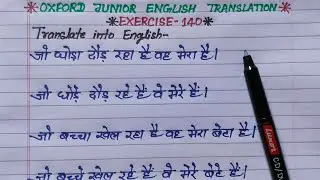 OXFORD JUNIOR ENGLISH TRANSLATION
EXERCISE-140
Translate into English-
जो घोड़ा दौड़ रहा है वह मेरा है।
जो घोड़े दौड़ रहे हैं वे मेरे हैं।
जो बच्चा खेल रहा है वह मेरा बेटा है।
जो बच्चे खेल रहे हैं वे मेरे बेटे हैं।